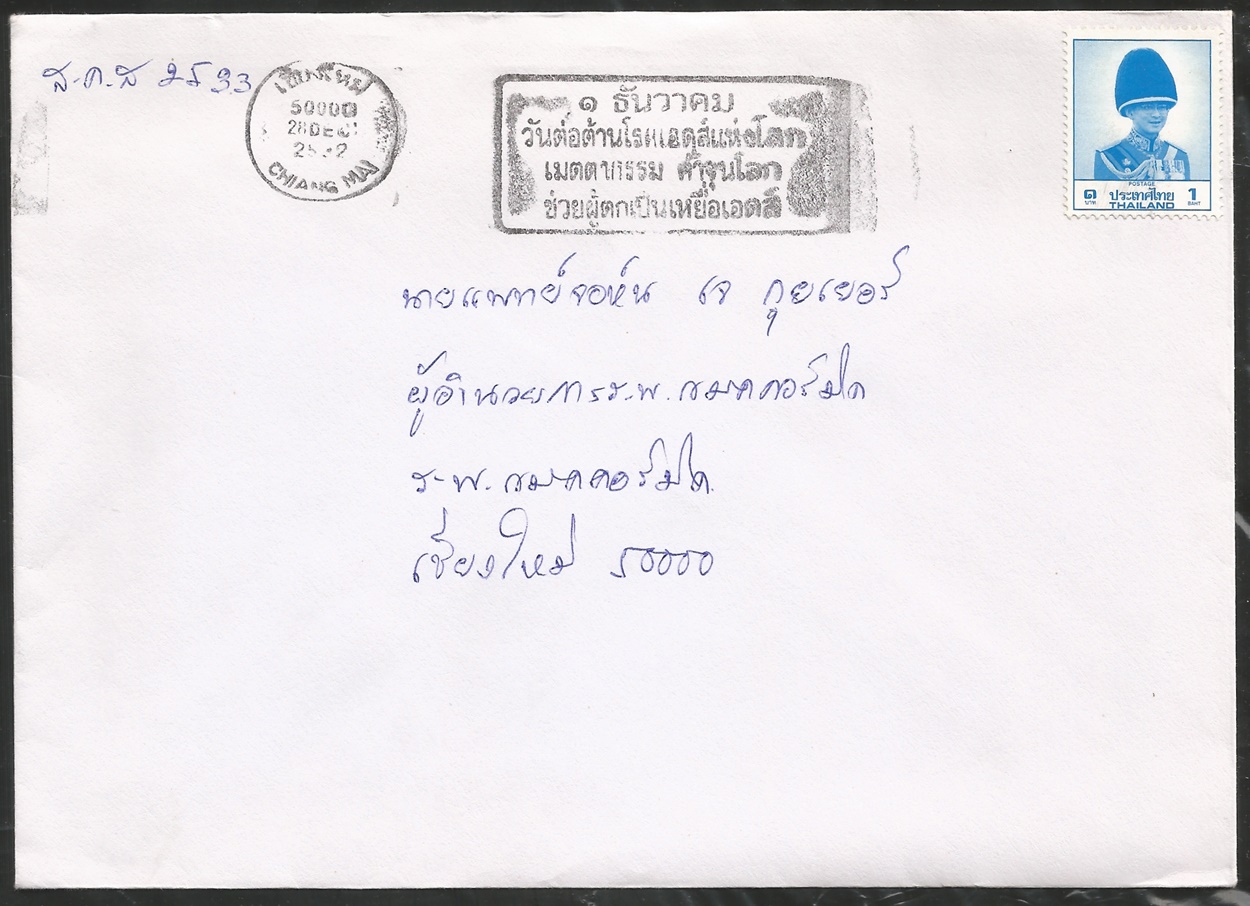 ส.ค.ส 2533
เชียงใหม่
50000
28 DEC
CHIANG MAI
๑ ธันวาคม
วันต่อต้านโรคเอดส์แห่งโลก
เมตตาธรรม ค้ำจุนโลก
ช่วยผู้ตกเป็นเหยื่อเอดส์
POSTAGE
๑ ประเทศไทย 1
บาท THAILAND BAHT
นายแพทย์จอห์น เจ กุยเยอร์
ผู้อำนวยการร.พ.แมคคอร์มิค
ร.พ.แมคคอร์มิค
เชียงใหม่ 50000